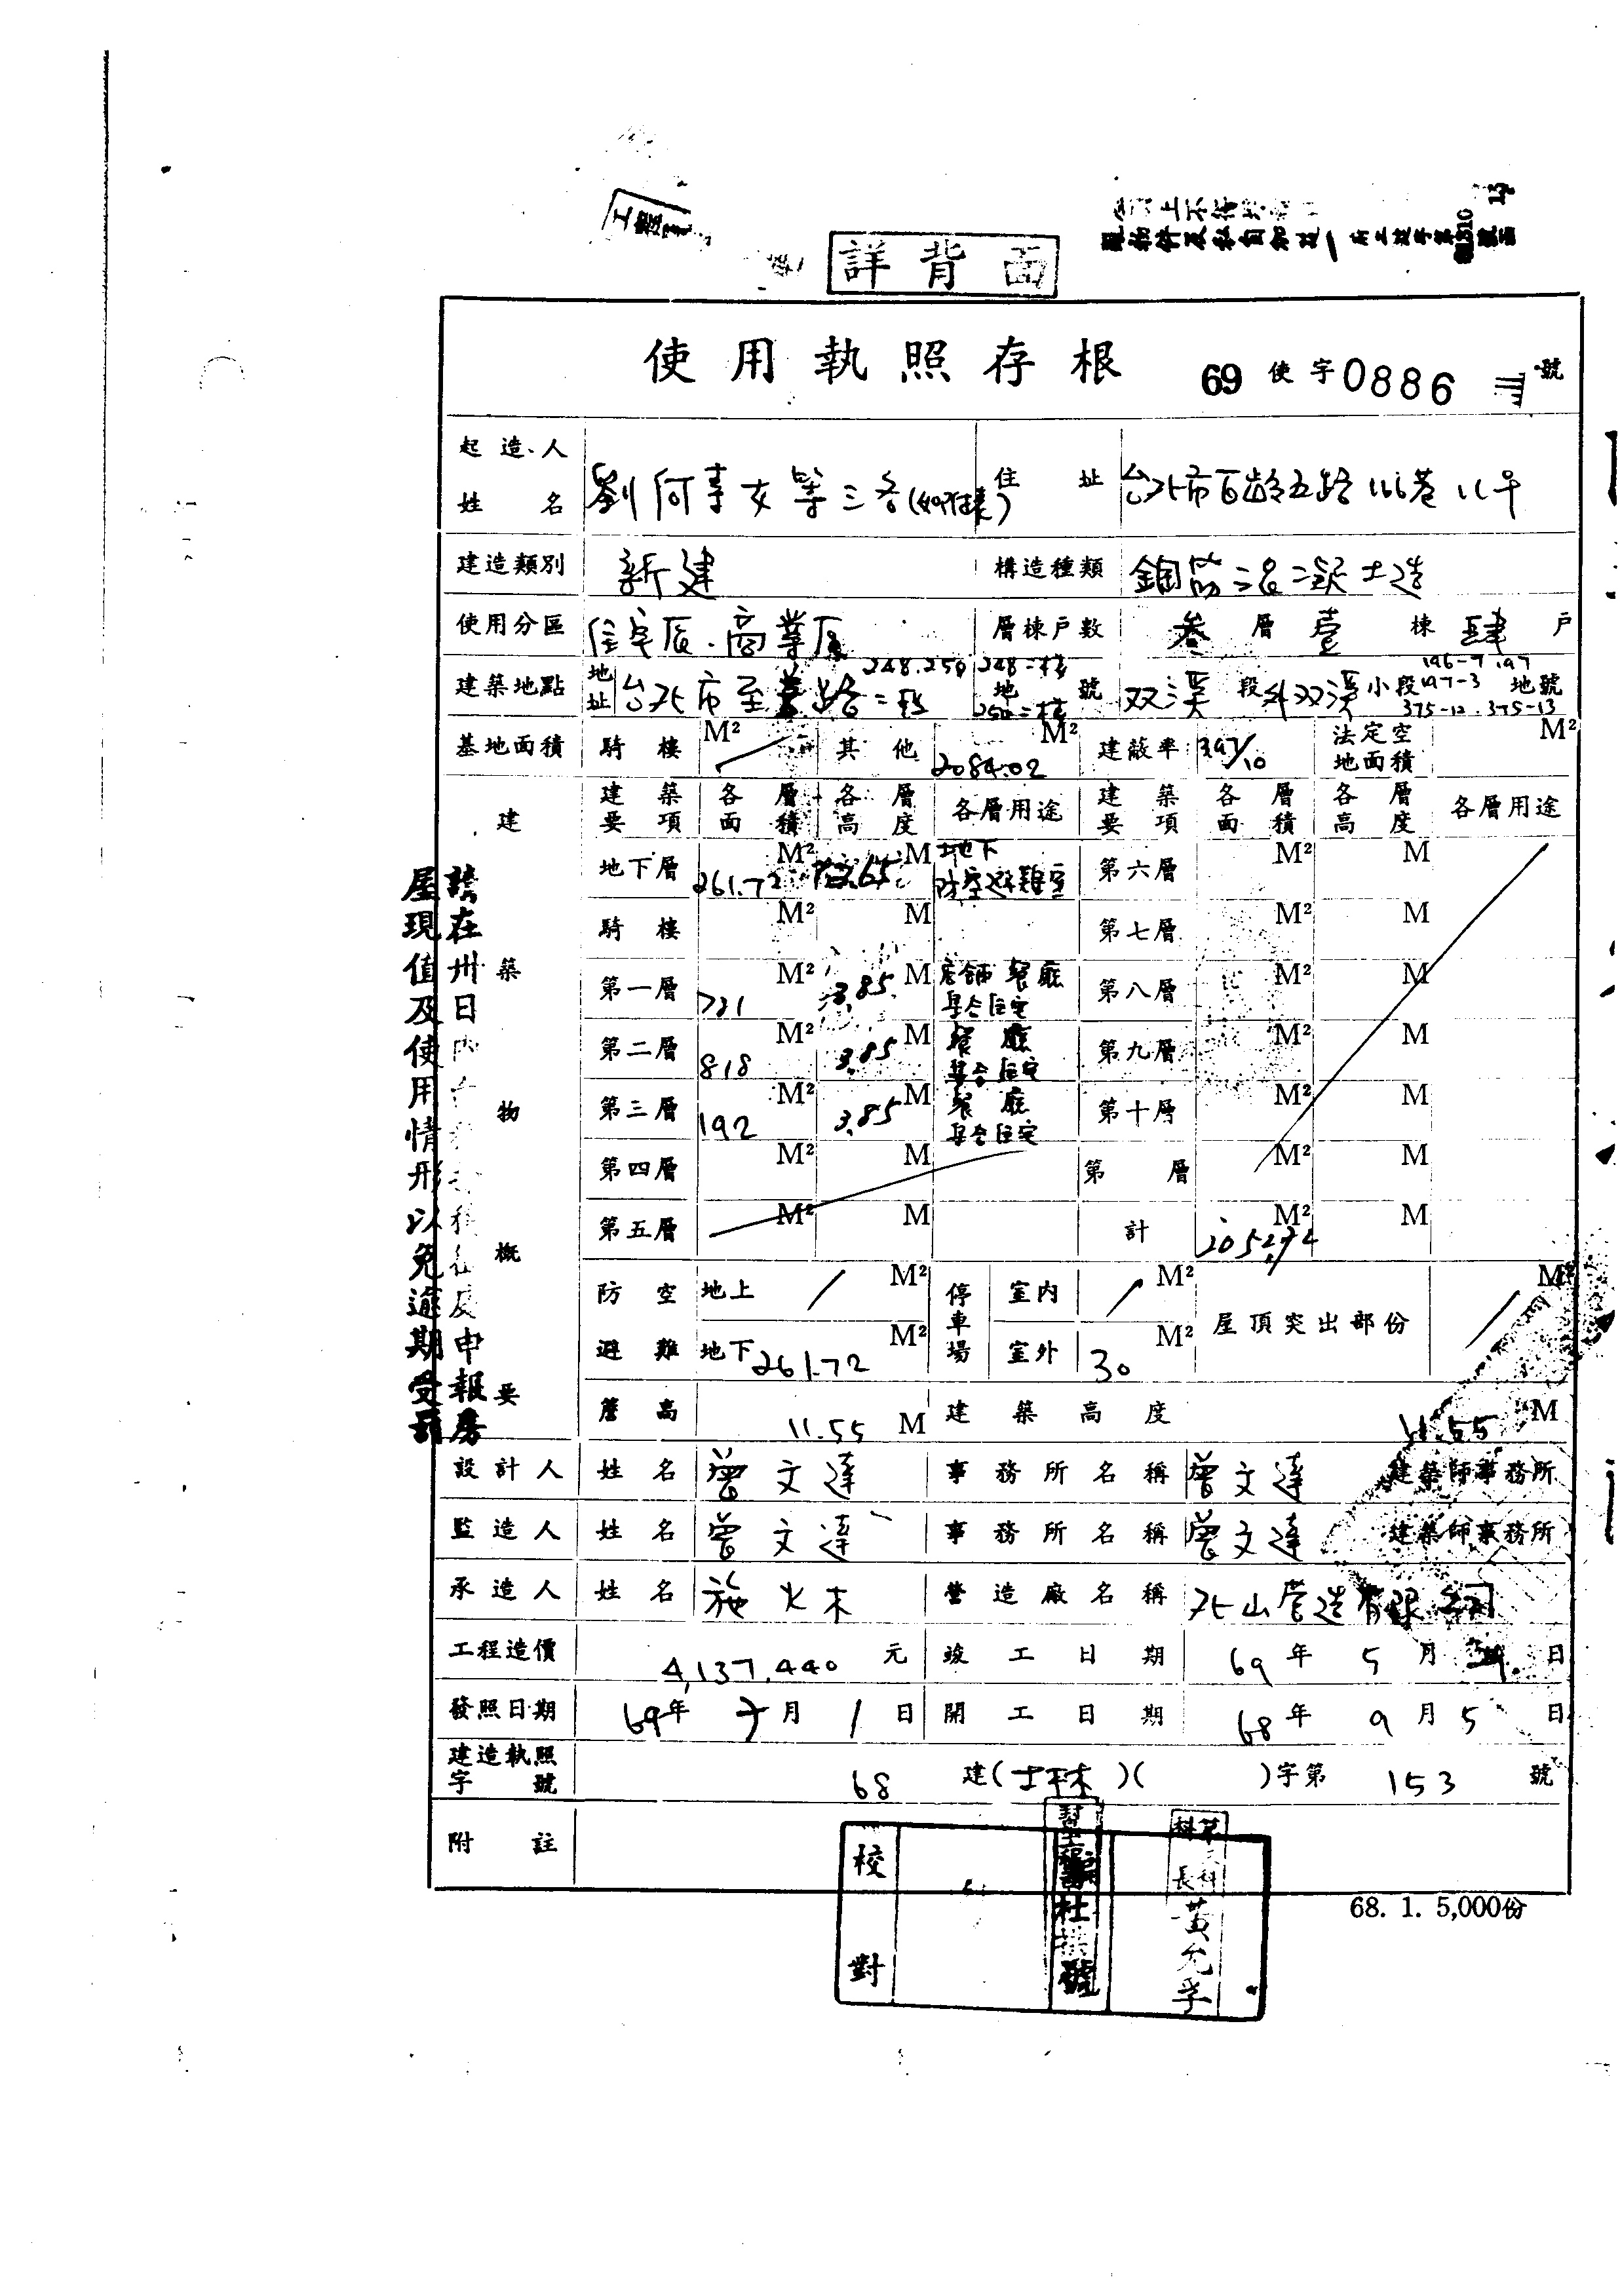 詳背面
使用執照存根 69 使字 0886 號
起造人姓名 劉何 女等三名(如附表) 住址 台北市百齡五路 巷
建造類別 新建 構造種類 鋼筋混凝土造
使用分區 住宅區.商業區 層棟戶數 叁層壹棟肆戶
建築地點 地址 台北市至善路二段 248.250 248二樓 250二樓 地號 双溪段外双溪小段 196-7.197 197-3 375-12.375-13 地號
基地面積 騎樓 M² 其他 2084.02 M² 建蔽率 3.97/10 法定空地面積 M²
建築物概要
建築要項 各層面積 各層高度 各層用途 建築要項 各層面積 各層高度 各層用途
地下層 261.72 M² 2.65 M 地下防空避難室 第六層 M² M
騎樓 M² M 第七層 M² M
第一層 781 M² 3.85 M 店鋪 餐廳 集合住宅 第八層 M² M
第二層 818 M² 3.85 M 餐廳 集合住宅 第九層 M² M
第三層 192 M² 3.85 M 餐廳 集合住宅 第十層 M² M
第四層 M² M 第 層 M² M
第五層 M² M 計 2052.72 M² M
防空避難 地上 M² 停車場 室內 M² 屋頂突出部份 M²
地下 261.72 M² 室外 30 M²
簷高 11.55 M 建築高度 11.55 M
設計人 姓名 曾文達 事務所名稱 曾文達 建築師事務所
監造人 姓名 曾文達 事務所名稱 曾文達 建築師事務所
承造人 姓名 施火木 營造廠名稱 北山營造有限公司
工程造價 4,137,440 元 竣工日期 69年5月 日
發照日期 69年 月1日 開工日期 68年9月5日
建造執照字號 68 建(士林)( )字第 153 號
附註
請在卅日內 申報房
屋現值及使用情形以免逾期受罰
68. 1. 5,000份
校對
科長 黃允孚